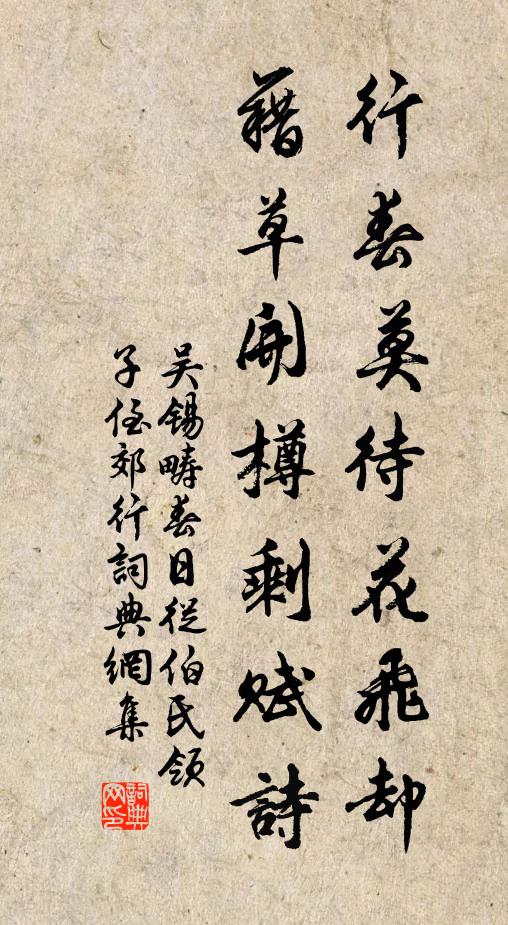 行春莫待花飛却
藉草開樽剩賦詩
吴錫疇春日從伯氏領
子侄郊行詞典網集
詞典
网印